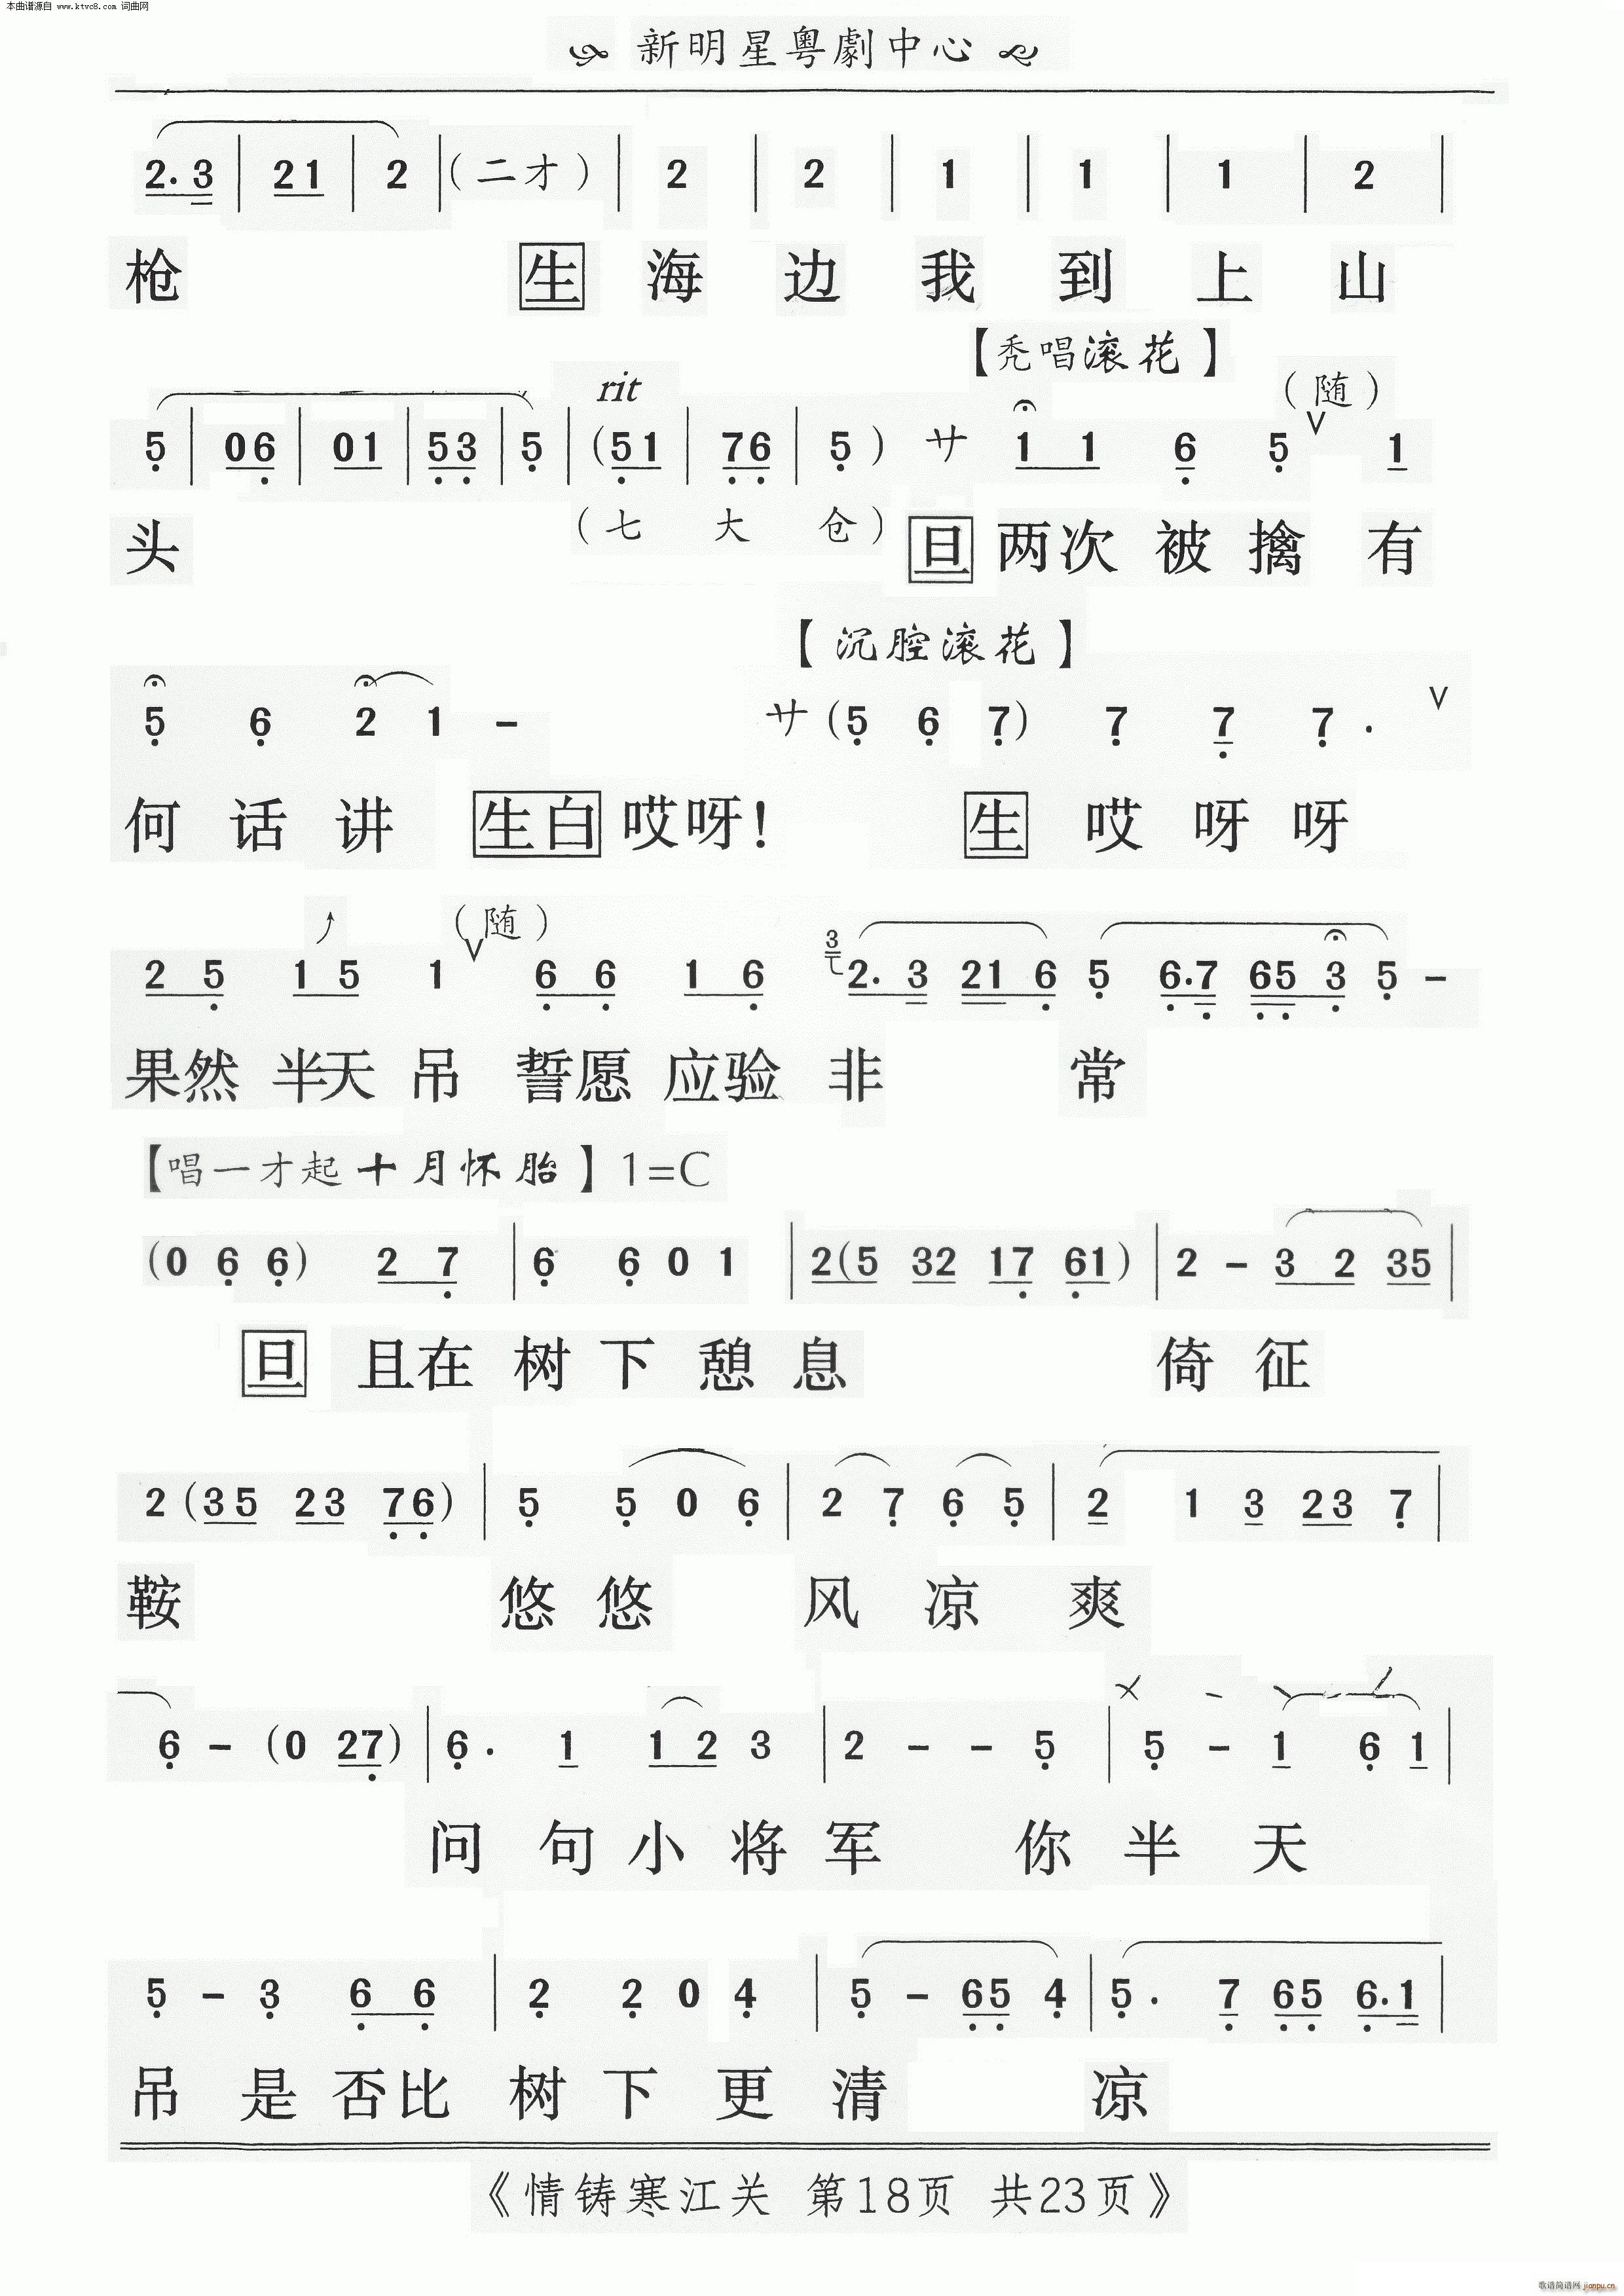 本曲谱源自 www.ktvc8.com 词曲网
新明星粤劇中心
2. 3 | 2 1 | 2 | (二才) | 2 | 2 | 1 | 1 | 1 | 2 |
枪 生 海 边 我 到 上 山
【秃唱滚花】
rit (随)
5 | 0 6 | 0 1 | 5 3 | 5 | (5 1 | 7 6 | 5 ) サ 1 1 6 5 V 1
(七 大 仓)
头 旦 两 次 被 擒 有
【沉腔滚花】
5 6 2 1 - サ (5 6 7) 7 7 7 . V
何 话 讲 生白 哎 呀! 生 哎 呀 呀
(随)
2 5 1 5 1 V 6 6 1 6 3 2. 3 2 1 6 5 6. 7 6 5 3 5 -
果然 半天 吊 誓愿 应验 非 常
【唱一才起十月怀胎】1=C
(0 6 6) 2 7 | 6 6 0 1 | 2 (5 3 2 1 7 6 1) | 2 - 3 2 3 5 |
旦 且在 树 下 憩 息 倚 征
2 (3 5 2 3 7 6) | 5 5 0 6 | 2 7 6 5 | 2 1 3 2 3 7 |
鞍 悠 悠 风 凉 爽
6 - (0 2 7) | 6. 1 1 2 3 | 2 - - 5 | 5 - 1 6 1 |
问 句 小 将 军 你 半 天
5 - 3 6 6 | 2 2 0 4 | 5 - 6 5 4 | 5. 7 6 5 6. 1 |
吊 是 否比 树 下 更 清 凉
《情铸寒江关 第18页 共23页》
歌谱简谱网 jianpu.cn